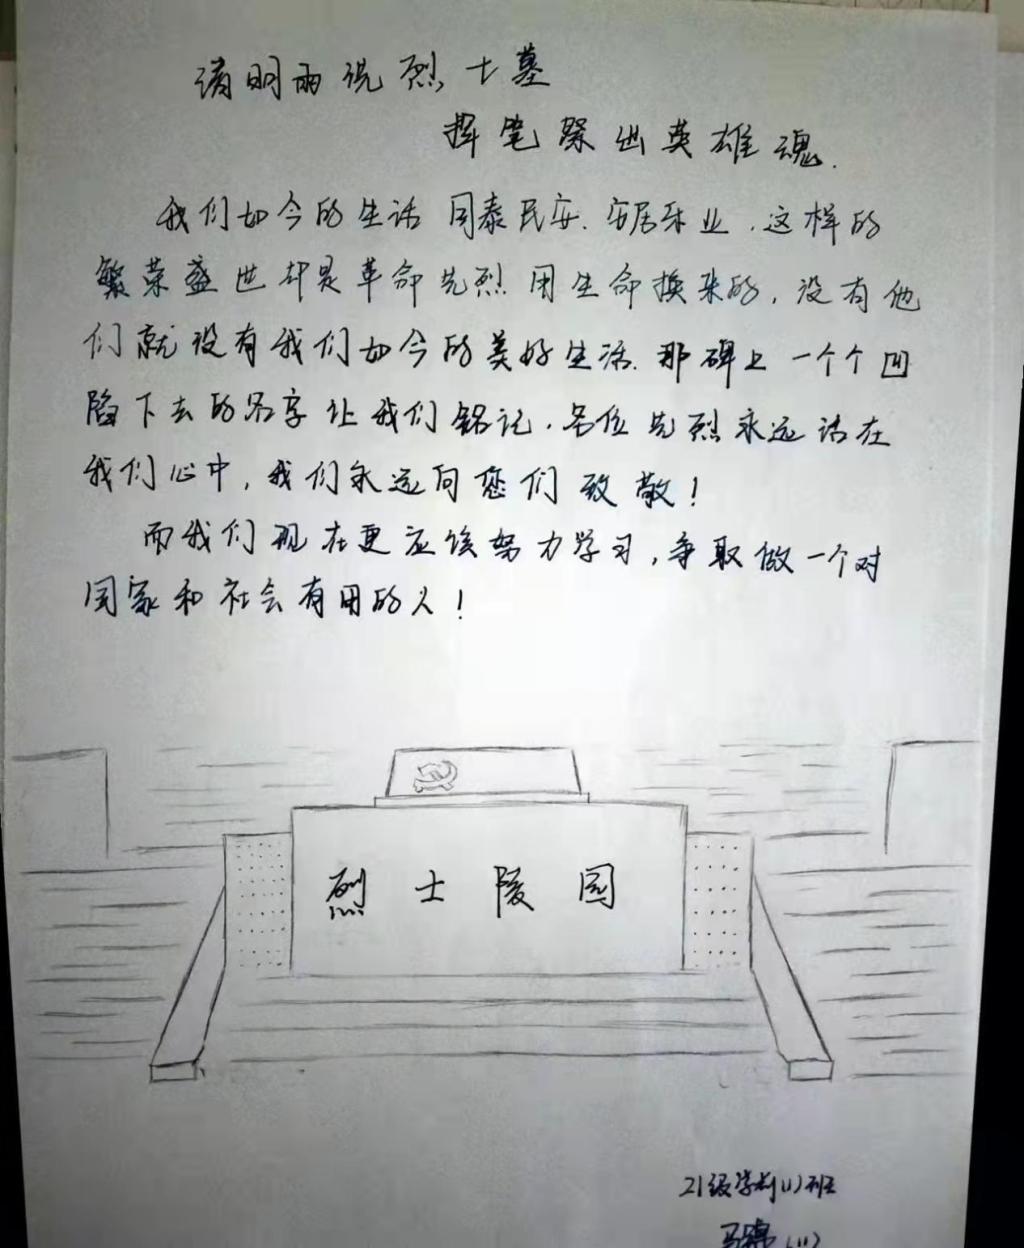 清明雨说烈士墓
挥笔祭出英雄魂.
我们如今的生活国泰民安.安居乐业.这样的
繁荣盛世却是革命先烈用生命换来的,没有他
们就没有我们如今的美好生活.那碑上一个个凹
陷下去的名字让我们铭记.各位先烈永远活在
我们心中,我们永远向您们致敬!
而我们现在更应该努力学习,争取做一个对
国家和社会有用的人!
烈士陵园
21级学前(1)班